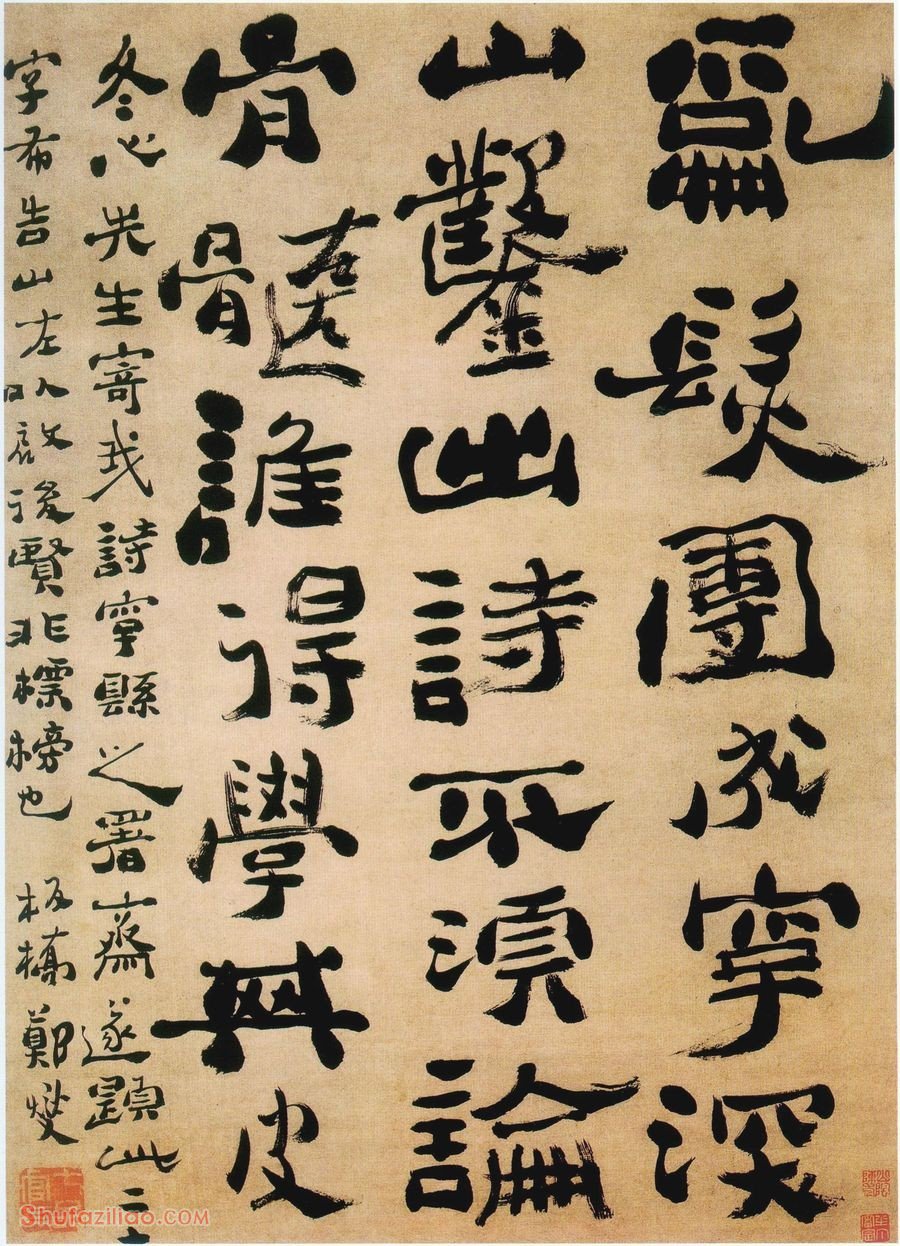 亂髮團成字深
山鑿出詩不須論
骨髓誰得學其皮
冬心先生寄我詩字縣之署齋遂題此二十
字布告山左以啟後賢非標榜也 板橋鄭燮
Shufaziliao.com